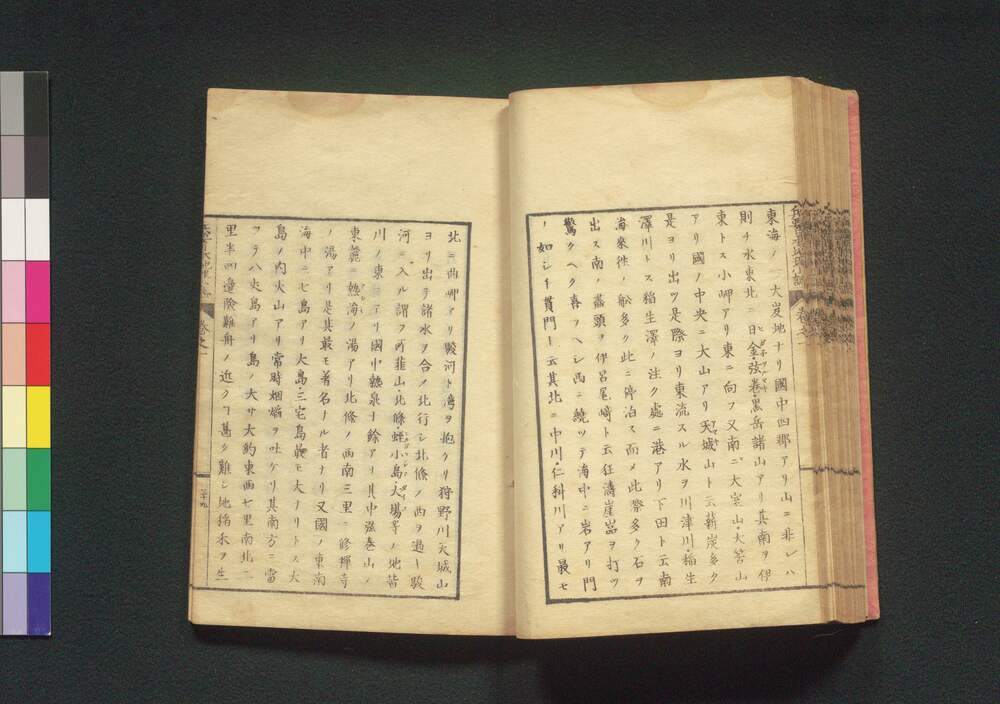 東海ノ一大岌地ナリ國中四郡アリ山ニ非レハ
則チ水東北ニ日金・弦巻・黒岳諸山アリ其南ヲ伊
東トス小岬アリ東ニ向フ又南ニ大室山・大筈山
アリ國ノ中央ニ大山アリ天城山ト云薪炭多ク
是ヨリ出ツ是際ヨリ東流スル水ヲ川津川・稲生
澤川トス稲生澤ノ注ク處ニ港アリ下田ト云南
海来往ノ船多ク此ニ停泊ス而メ此際多ク石ヲ
出ス南ノ盡頭ヲ伊呂尾﨑ト云狂濤崖嵓ヲ打ツ
驚クヘク喜フヘシ西ニ繞ツテ海中ニ岩アリ門
ノ如シ手貫門ト云其北ニ中川・仁科川アリ最モ
北ニ曲岬アリ駿河ト湾ヲ抱クリ狩野川天城山
ヨリ出テ諸水ヲ合ノ北行シ北條ノ西ヲ過ー駿
河ニ入ル謂フ所韮山・北條・蛭小島・大場等ノ地皆
川ノ東ニアリ國中熱泉十餘アリ其中弦巻山ノ
東麓ニ熱海ノ湯アリ北條ノ西南三里ニ修禅寺
ノ湯アリ是其最モ著名ナル者ナリ又國ノ東南
海中ニ七島アリ大島・三宅島最モ大ナリトス大
島ノ内火山アリ常時烟焔ヲ吐ケリ其南方ニ當
ツテ八丈島アリ島ノ大サ大約東西七里南北二
里半四邊險難舟ノ近クヿ甚タ難シ地稲禾ヲ生
巻之一
二十九